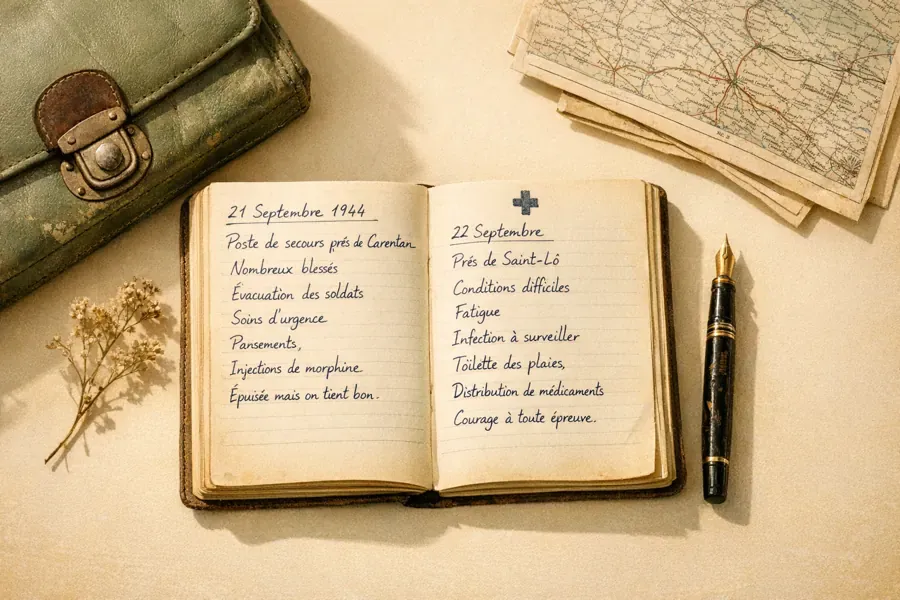 21 Septembre 1944
Poste de secours prés de Carentan
Nombreux blessés
Évacuation des soldats
Soins d'urgence
Pansements,
Injections de morphine
Épuisée mais on tient bon.
22 Septembre
Prés de Saint-Lô
Conditions difficiles
Fatigue
Infection à surveiller
Toilette des plaies,
Distribution de médicaments
Courage à toute épreuve.